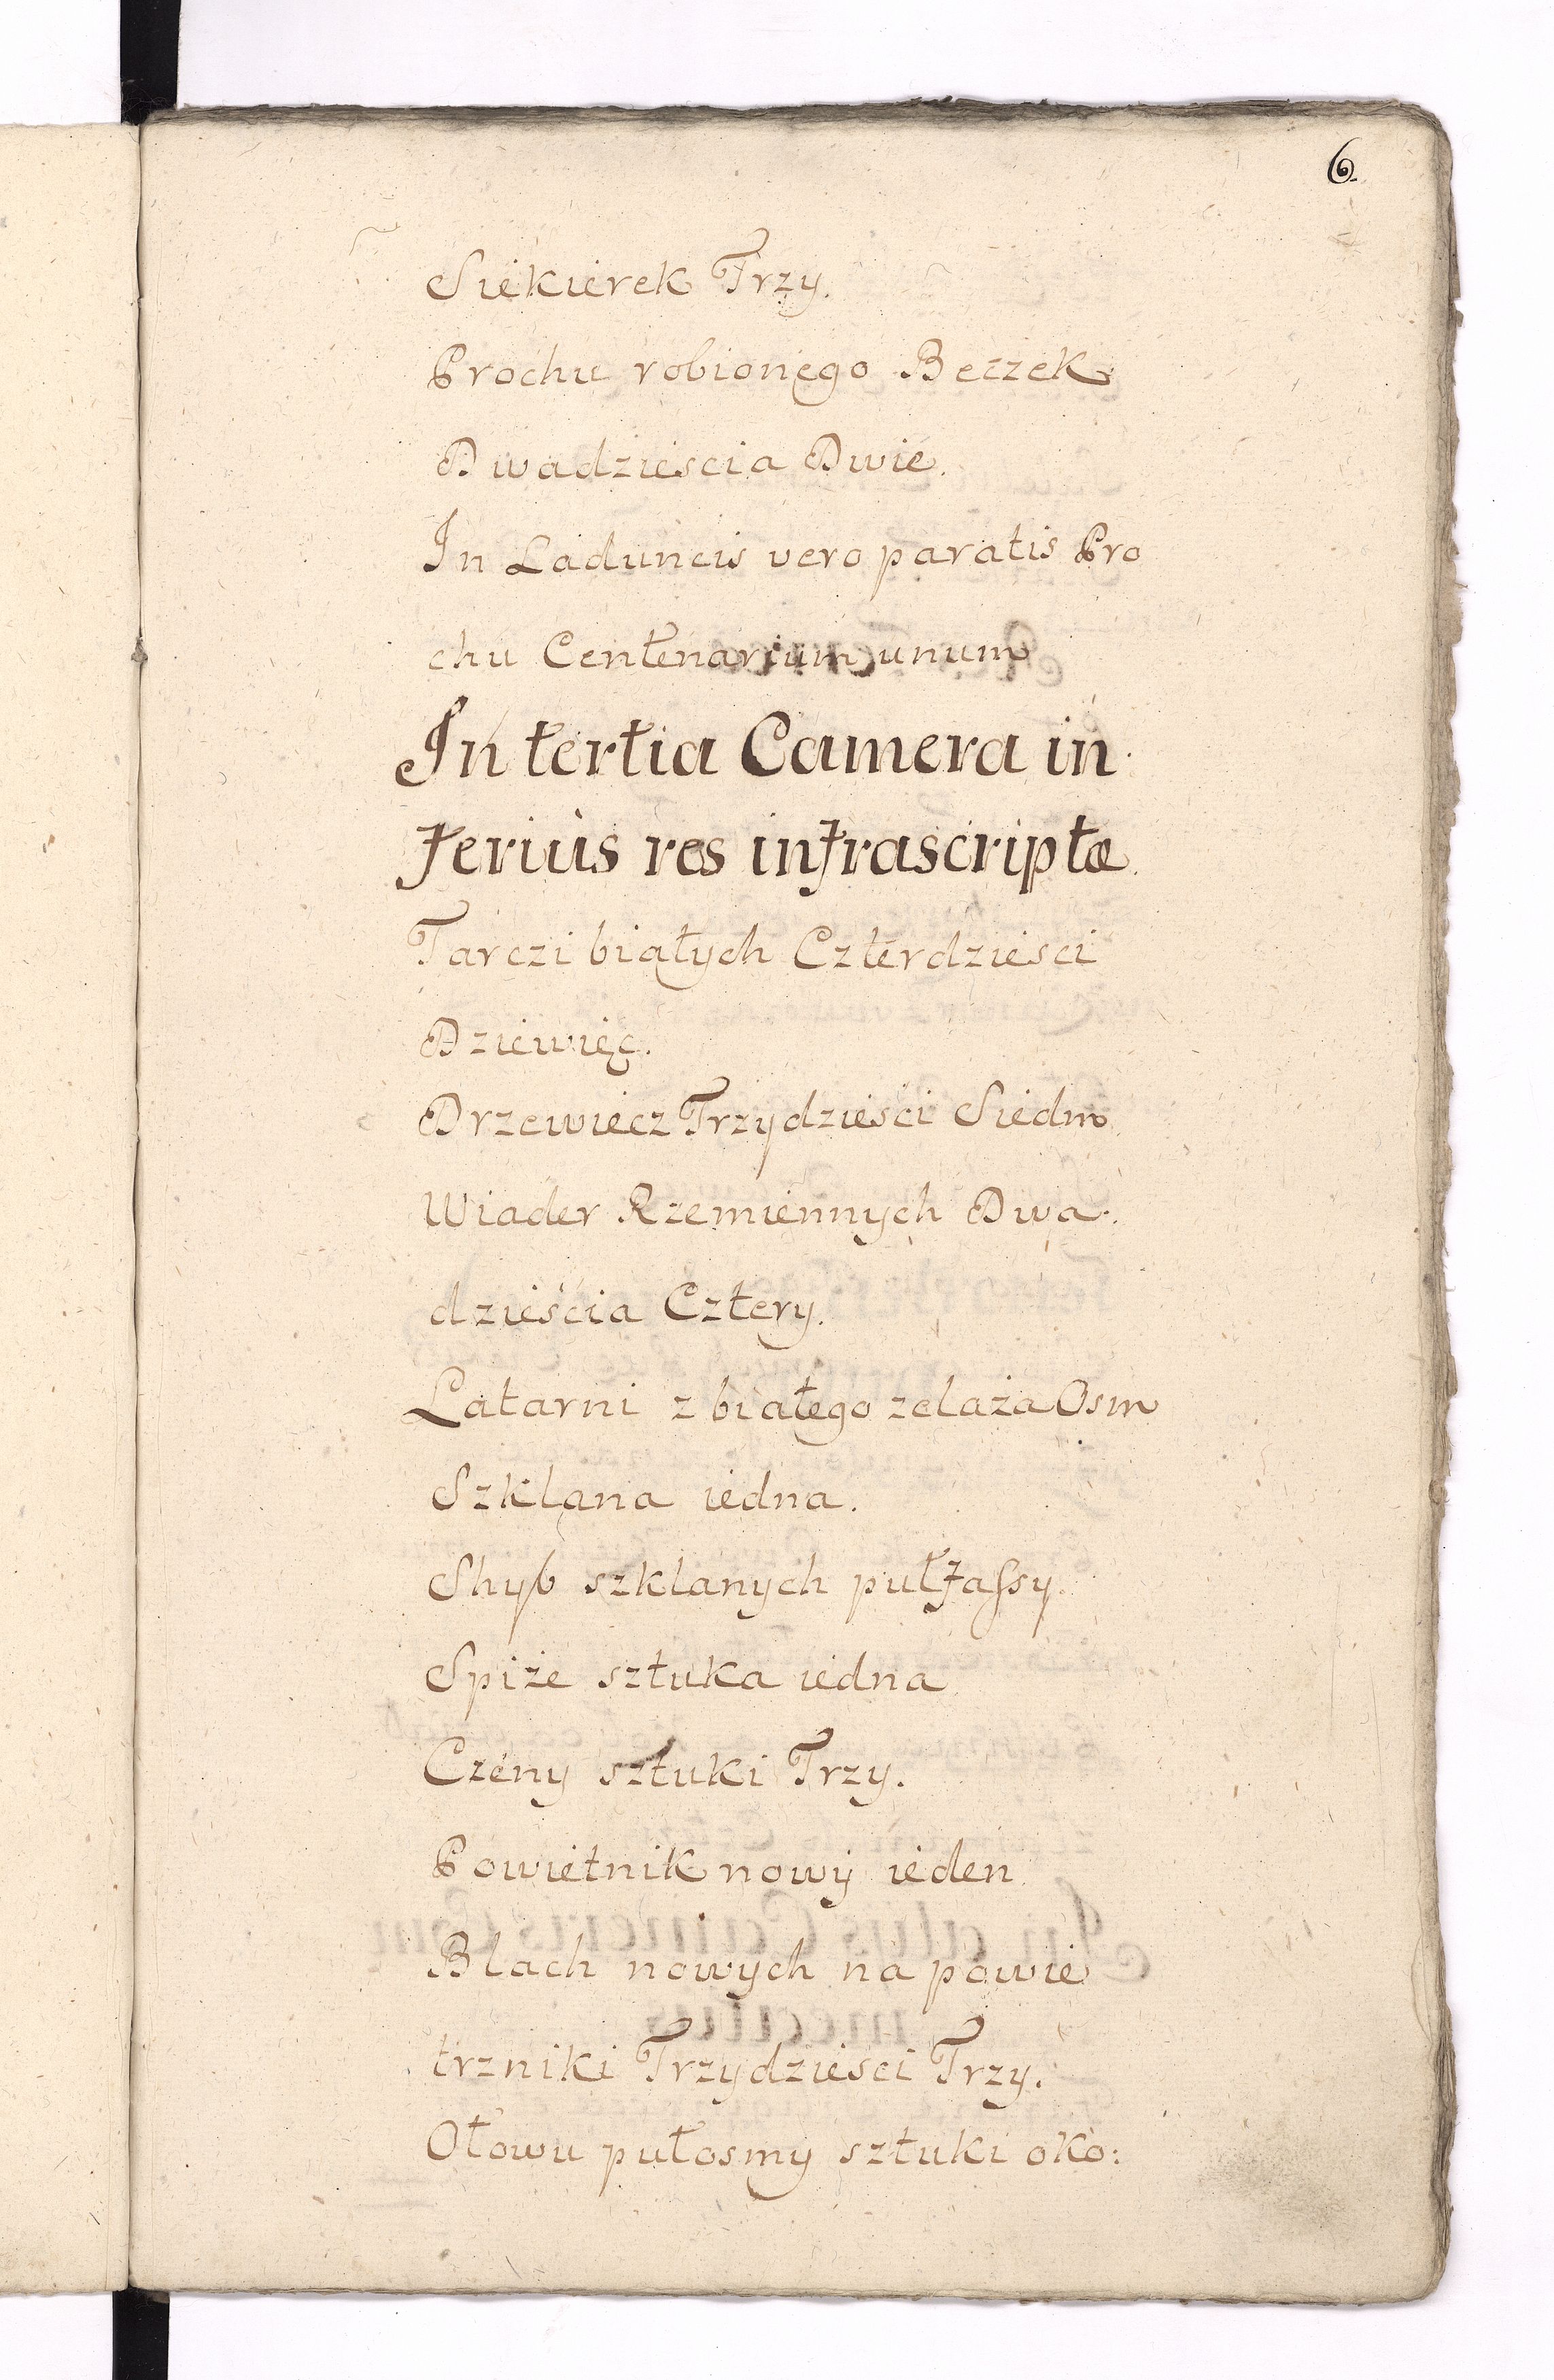 6.
Siekierek Trzy.
Prochu robionego Beczek
Dwadziescia Dwie.
In Laduncis vero paratis Pro
chu Centenarium unum
In tertia Camera in
ferius res infrascriptæ.
Tarczi białych Czterdziesci
Dziewięc.
Drzewiecz Trzydzieści Siedm
Wiader Rzemiennych Dwa
dzieścia Cztery.
Latarni z białego zelaża Osm
Szklana iedna.
Shyb szklanych pułfassy
Spiże sztuka iedna
Czeny sztuki Trzy.
Powietnik nowy ieden
Blach nowych na powie
trzniki Trzydziesci Trzy.
Ołowu pułosmy sztuki oko: